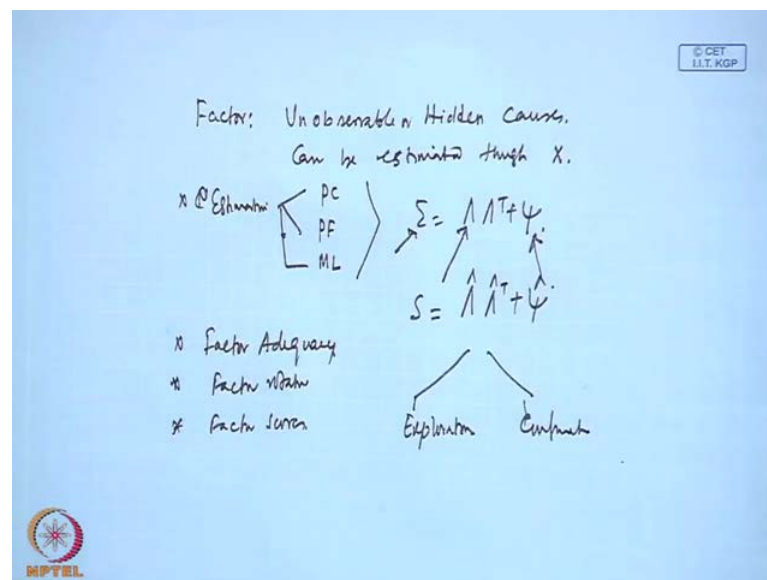 © CET
I.I.T. KGP
Factor: Unobservable or Hidden Causes.
Can be estimated though X.
* Estimation PC
PF
ML
Σ = ΛΛᵀ + Ψ.
S = Λ̂Λ̂ᵀ + Ψ̂.
* Factor Adequacy
* Factor
* Factor Scores
Exploration
NPTEL